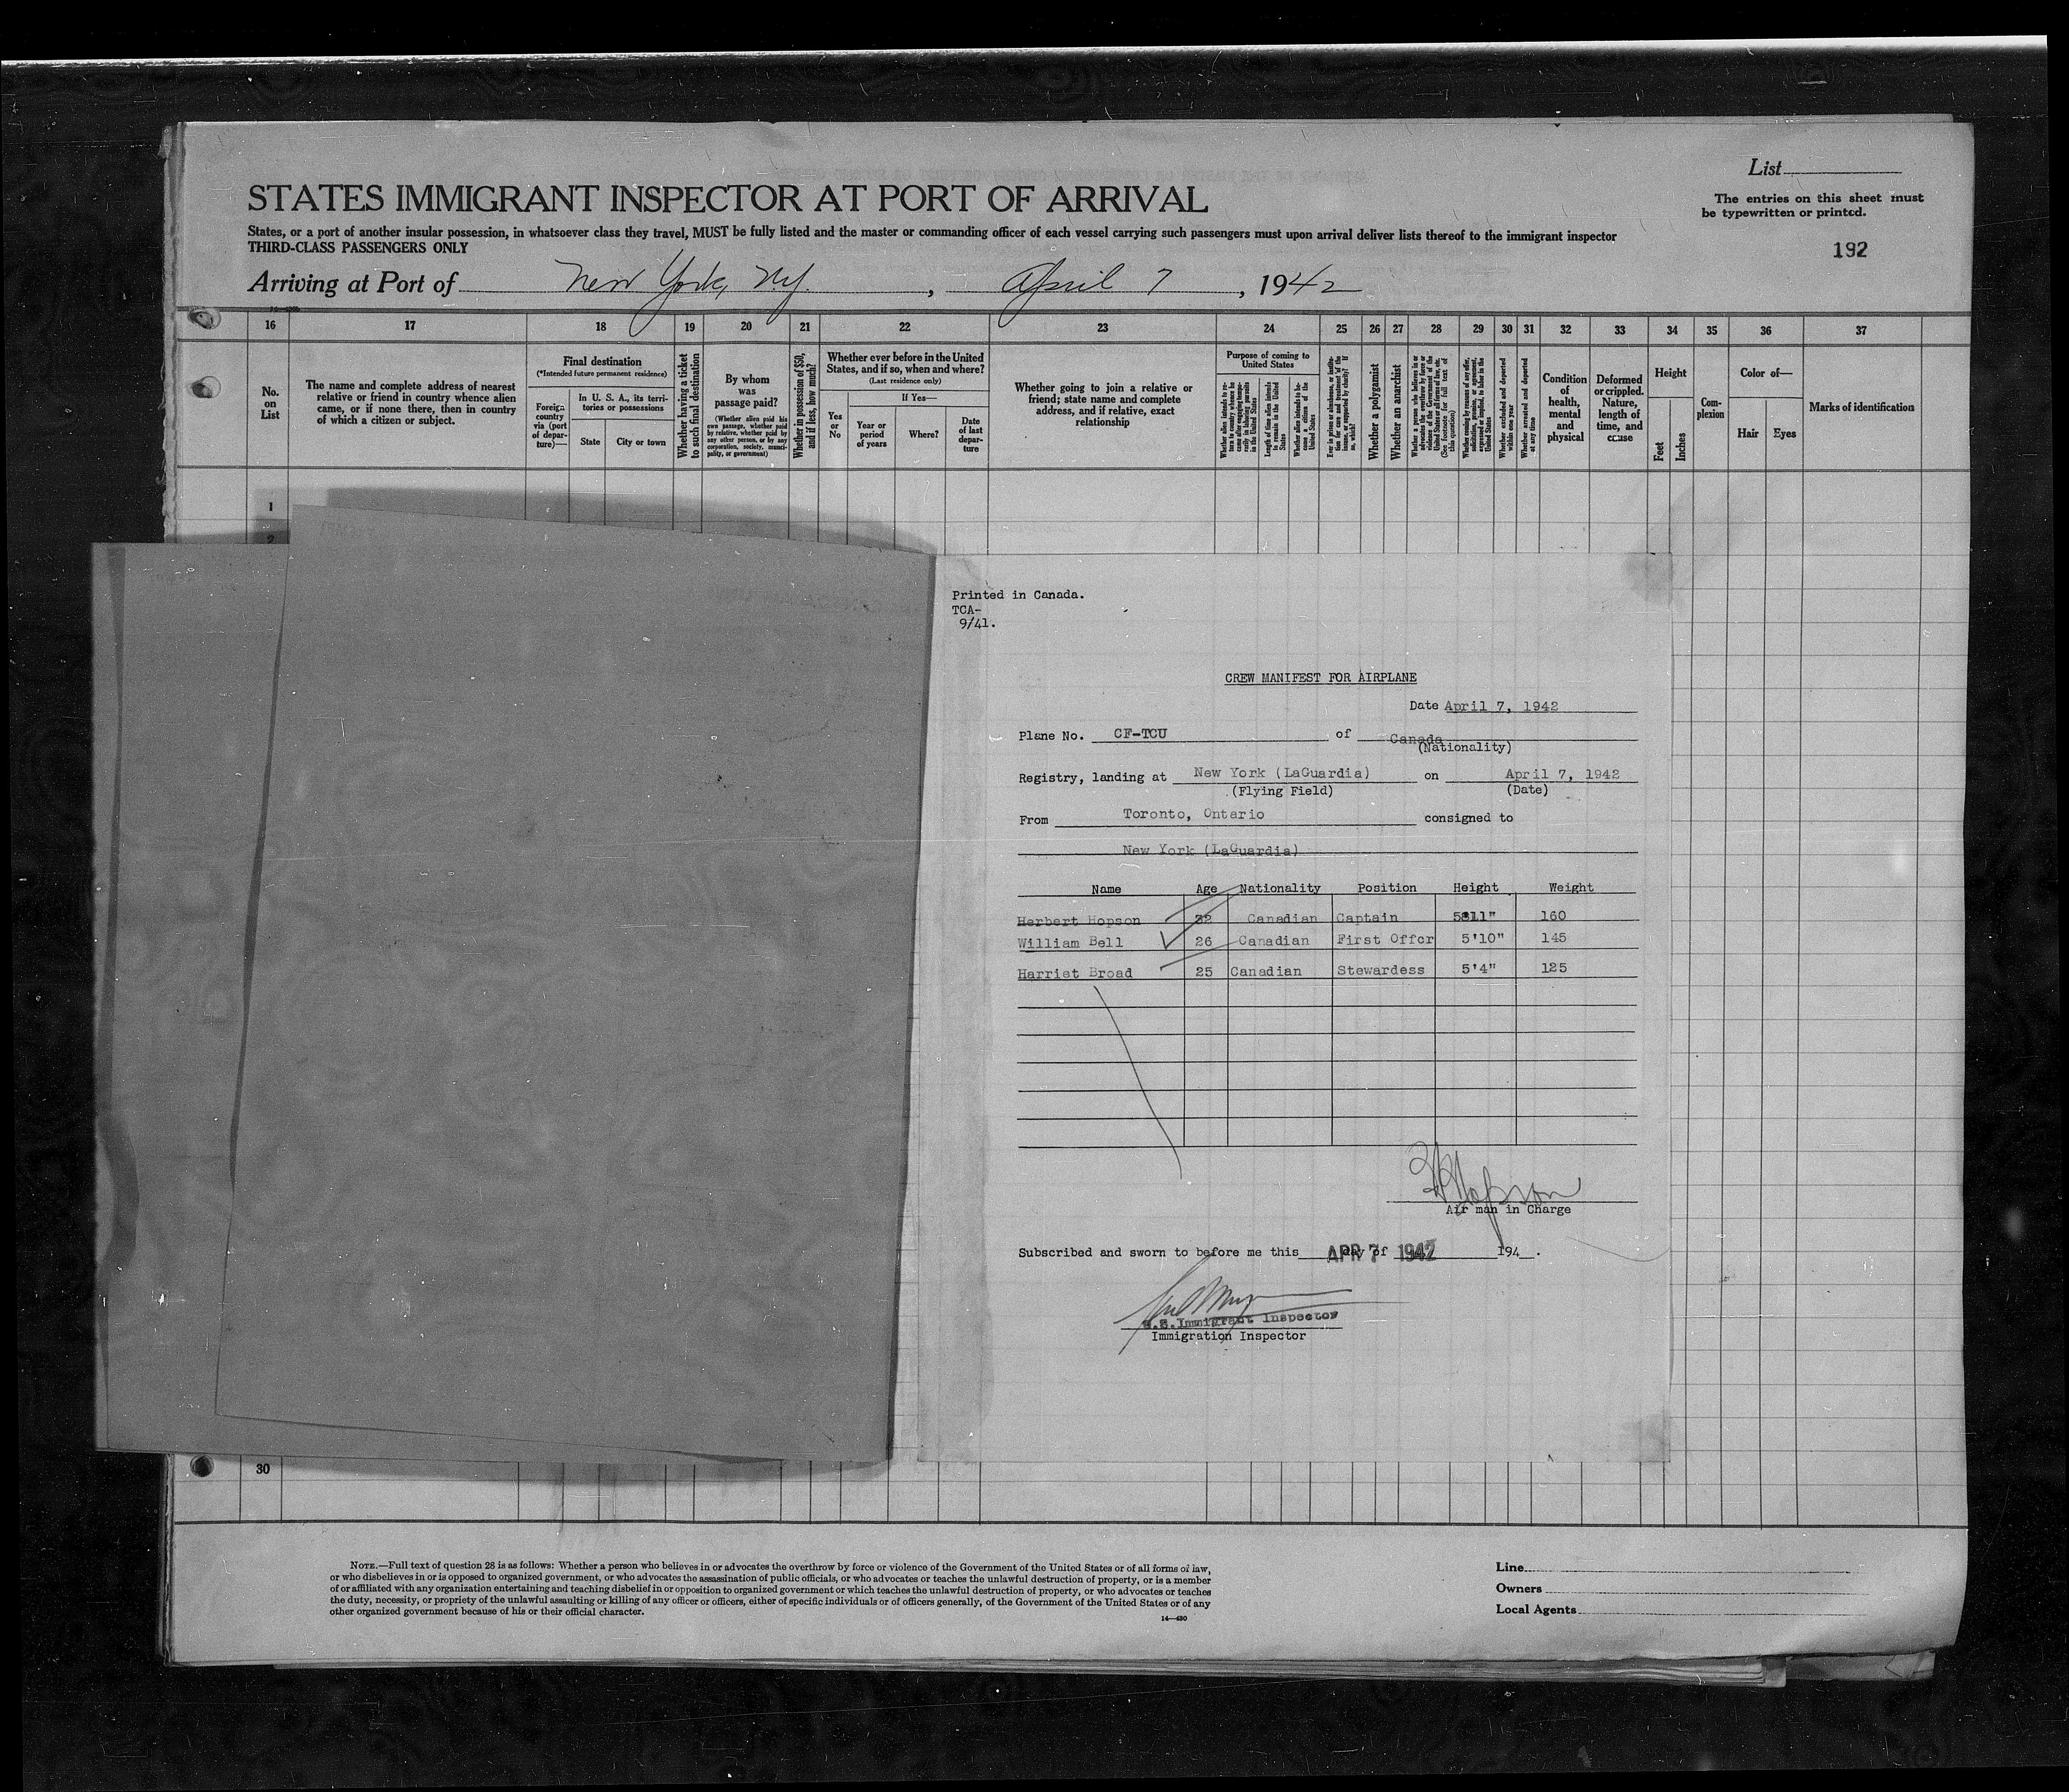 List
The entries on this sheet must
be typewritten or printed.
192
STATES IMMIGRANT INSPECTOR AT PORT OF ARRIVAL
States, or a port of another insular possession, in whatsoever class they travel, MUST be fully listed and the master or commanding officer of each vessel carrying such passengers must upon arrival deliver lists thereof to the immigrant inspector
THIRD-CLASS PASSENGERS ONLY
Arriving at Port of New York, N.Y. , April 7 , 1942
16 17 18 19 20 21 22 23 24 25 26 27 28 29 30 31 32 33 34 35 36 37
No.
on
List
The name and complete address of nearest
relative or friend in country whence alien
came, or if none there, then in country
of which a citizen or subject.
Final destination
(*Intended future permanent residence)
Foreign
country
via (port
of depar-
ture)—
In U. S. A., its terri-
tories or possessions
State
City or town
Whether having a ticket
to such final destination
By whom
was
passage paid?
(Whether alien paid his
own passage, whether paid
by relative, whether paid by
any other person, or by any
corporation, society, munici-
pality, or government)
Whether in possession of $50,
and if less, how much?
Whether ever before in the United
States, and if so, when and where?
(Last residence only)
Yes
or
No
If Yes—
Year or
period
of years
Where?
Date
of last
depar-
ture
Whether going to join a relative or
friend; state name and complete
address, and if relative, exact
relationship
Purpose of coming to
United States
Length of time alien intends
to remain in the United
States
Whether alien intends to be-
come a citizen of the
United States
Whether a polygamist
Whether an anarchist
Whether arrested and deported
at any time
Condition
of
health,
mental
and
physical
Deformed
or crippled.
Nature,
length of
time, and
cause
Height
Feet
Inches
Com-
plexion
Color of—
Hair
Eyes
Marks of identification
1
2
Printed in Canada.
TCA-
9/41.
CREW MANIFEST FOR AIRPLANE
Date April 7, 1942
Plane No. CF-TCU of Canada
(Nationality)
Registry, landing at New York (LaGuardia) on April 7, 1942
(Flying Field) (Date)
From Toronto, Ontario consigned to
New York (LaGuardia)
Name Age Nationality Position Height Weight
Herbert Hopson 32 Canadian Captain 5'11" 160
William Bell 26 Canadian First Offcr 5'10" 145
Harriet Broad 25 Canadian Stewardess 5'4" 125
Hopson
Air man in Charge
Subscribed and sworn to before me this day of 194 .
APR 7 1942
U.S. Immigrant Inspector
Immigration Inspector
30
NOTE.—Full text of question 28 is as follows: Whether a person who believes in or advocates the overthrow by force or violence of the Government of the United States or of all forms of law,
or who disbelieves in or is opposed to organized government, or who advocates the assassination of public officials, or who advocates or teaches the unlawful destruction of property, or is a member
of or affiliated with any organization entertaining and teaching disbelief in or opposition to organized government or which teaches the unlawful destruction of property, or who advocates or teaches
the duty, necessity, or propriety of the unlawful assaulting or killing of any officer or officers, either of specific individuals or of officers generally, of the Government of the United States or of any
other organized government because of his or their official character.
14—430
Line
Owners
Local Agents